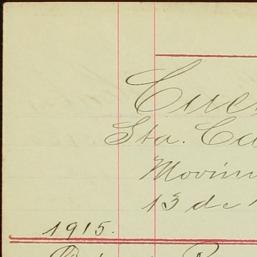 Cue
Sta. Ca
Movim
13 de
1915.